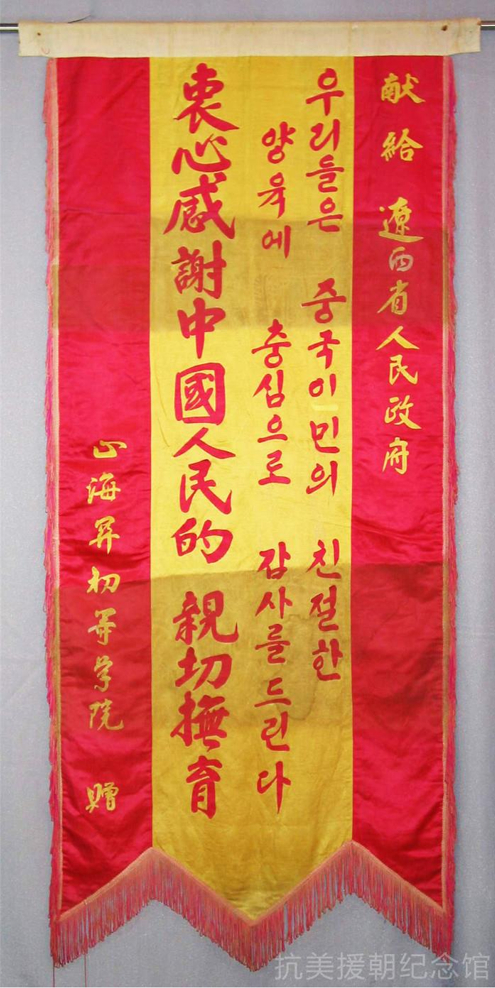 献给 遼西省人民政府
우리들은 중국이민의 친절한
양육에 충심으로 감사를드린다
衷心感謝中國人民的 親切撫育
山海関初等学院 赠
抗美援朝纪念馆